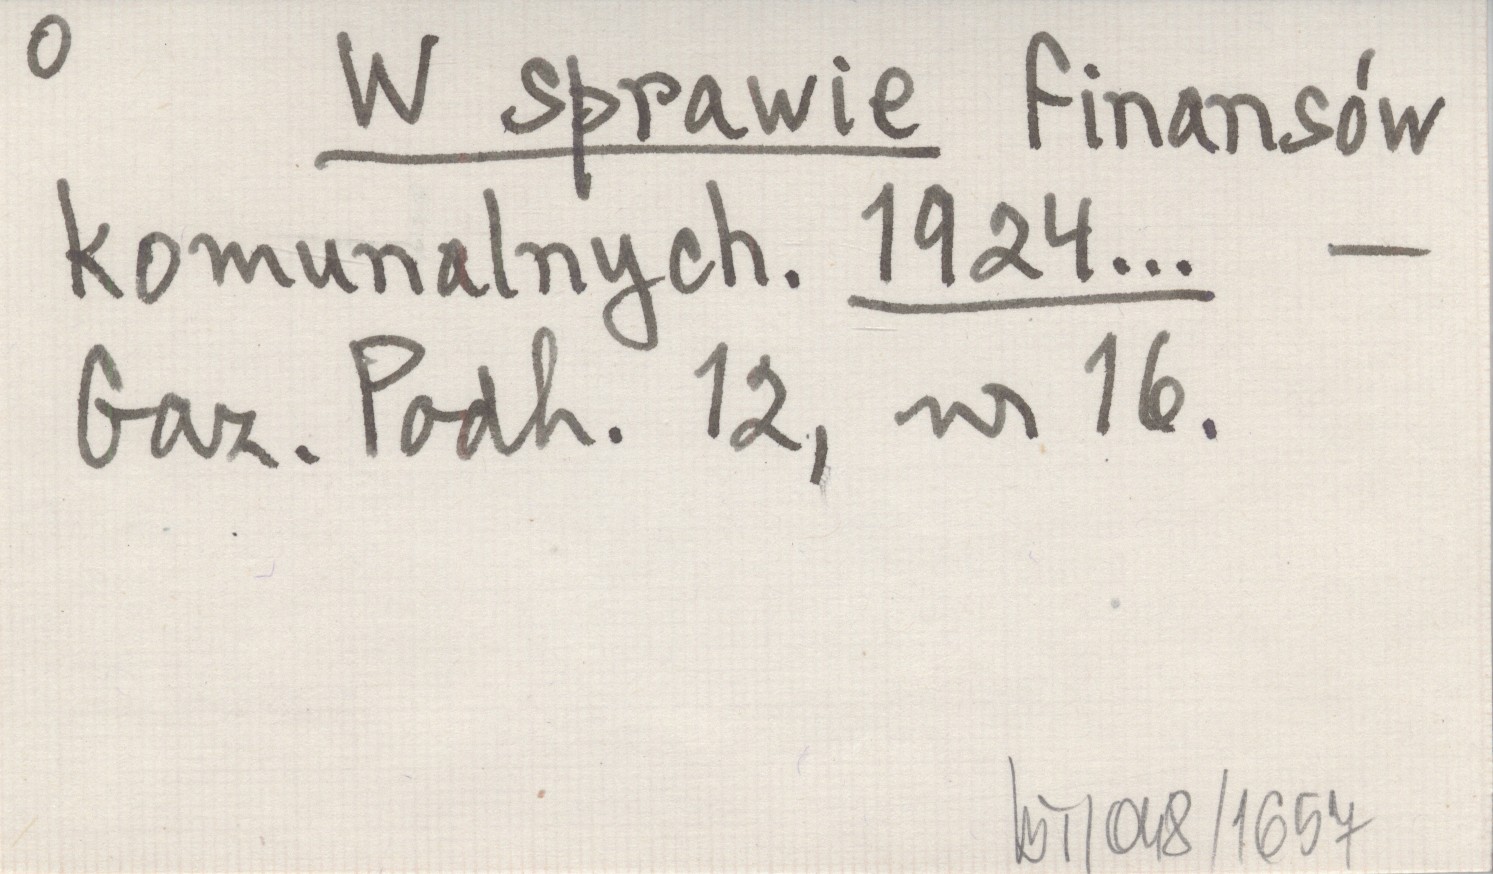 o
W sprawie finansów
komunalnych. 1924... —
Gaz. Podh. 12, nr 16.
/048/1657